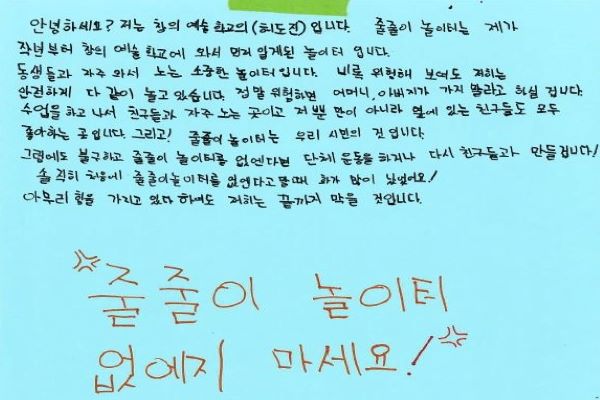 안녕하세요? 저는 창의 예술 학교의 (최도진) 입니다. 줄줄이 놀이터는 제가
작년부터 창의 예술 학교에 와서 먼저 알게된 놀이터 입니다.
동생들과 자주 와서 노는 소중한 놀이터 입니다. 비록 위험해 보여도 저희는
안전하게 다 같이 놀고 있습니다. 정말 위험하면 어머니, 아빠지가 가지 말라고 하실 겁니다.
수업을 하고 나서 친구들과 자주 노는 곳이고 저 뿐 만이 아니라 옆에 있는 친구들도 모두
좋아하는 곳 입니다. 그리고! 줄줄이 놀이터는 우리 시민의 것 입니다.
그럼에도 불구하고 줄줄이 놀이터를 없엔다면 단체 운동을 하거나 다시 친구들과 만들겁니다!
솔직히 처음에 줄줄이놀이터를 없엔다고 할때 화가 많이 났었어요!
아무리 힘을 가지고 있다 하여도 저희는 끝까지 막을 것입니다.
줄줄이 놀이터
없에지 마세요!